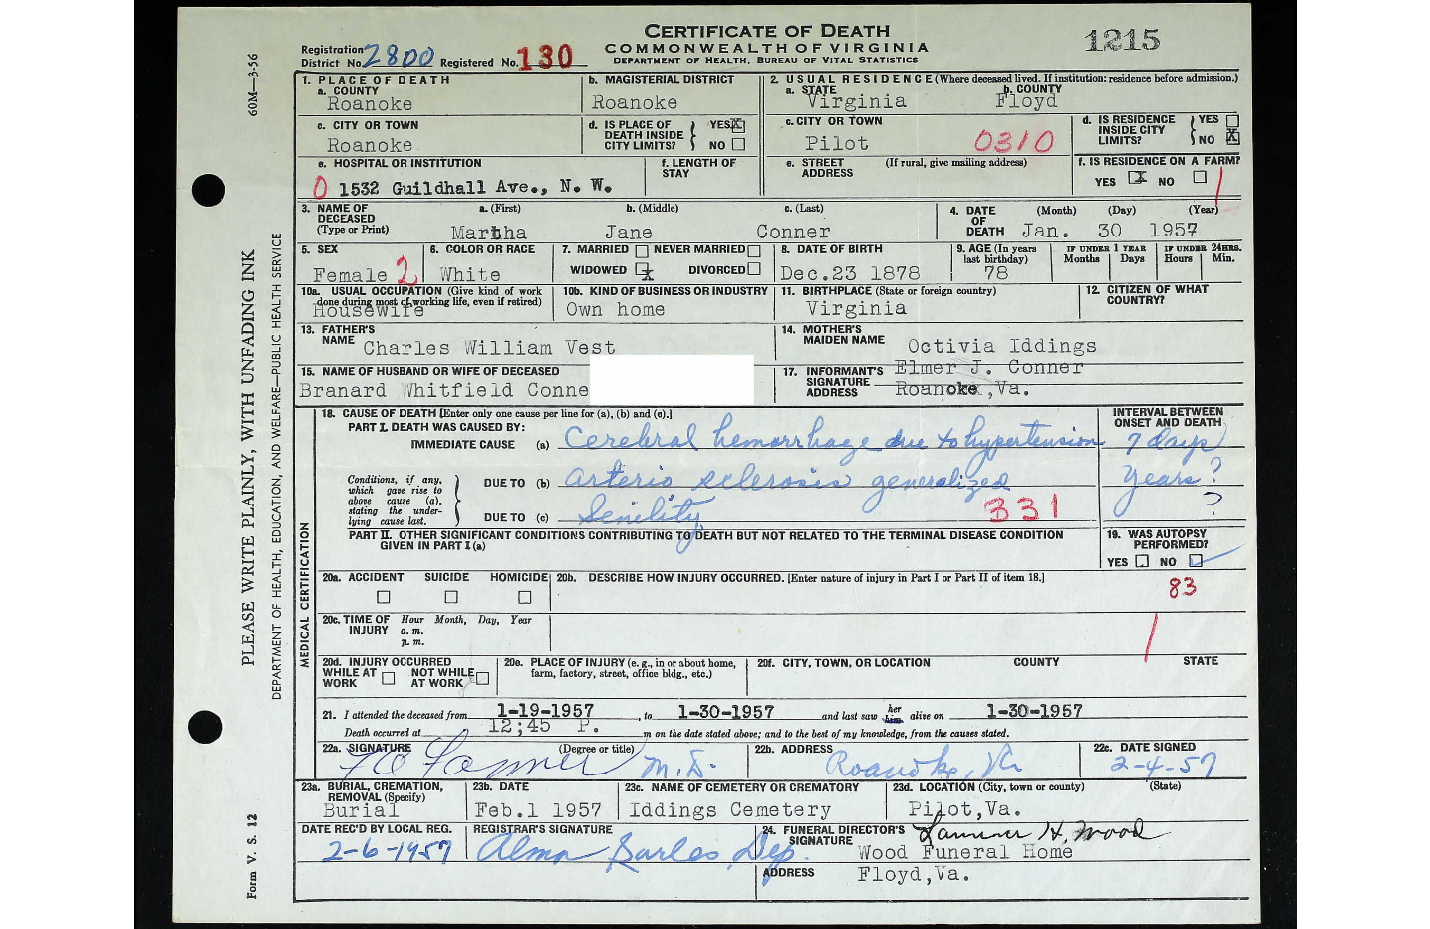 CERTIFICATE OF DEATH
COMMONWEALTH OF VIRGINIA
DEPARTMENT OF HEALTH, BUREAU OF VITAL STATISTICS
1215
Registration District No. 2800 Registered No. 130
60M—3-56
PLEASE WRITE PLAINLY, WITH UNFADING INK
DEPARTMENT OF HEALTH, EDUCATION, AND WELFARE—PUBLIC HEALTH SERVICE
Form V. S. 12
1. PLACE OF DEATH
a. COUNTY
Roanoke
b. MAGISTERIAL DISTRICT
Roanoke
2. USUAL RESIDENCE (Where deceased lived. If institution: residence before admission.)
a. STATE
Virginia
b. COUNTY
Floyd
c. CITY OR TOWN
Roanoke
d. IS PLACE OF DEATH INSIDE CITY LIMITS? YES X NO
c. CITY OR TOWN
Pilot 0310
d. IS RESIDENCE INSIDE CITY LIMITS? YES NO X
e. HOSPITAL OR INSTITUTION
0 1532 Guildhall Ave., N. W.
f. LENGTH OF STAY
e. STREET ADDRESS (If rural, give mailing address)
f. IS RESIDENCE ON A FARM?
YES X NO
3. NAME OF DECEASED (Type or Print)
a. (First) b. (Middle) c. (Last)
Martha Jane Conner
4. DATE OF DEATH (Month) (Day) (Year)
Jan. 30 1957
5. SEX
Female 2
6. COLOR OR RACE
White
7. MARRIED NEVER MARRIED
WIDOWED X DIVORCED
8. DATE OF BIRTH
Dec.23 1878
9. AGE (In years last birthday)
78
IF UNDER 1 YEAR Months Days
IF UNDER 24HRS. Hours Min.
10a. USUAL OCCUPATION (Give kind of work done during most of working life, even if retired)
Housewife
10b. KIND OF BUSINESS OR INDUSTRY
Own home
11. BIRTHPLACE (State or foreign country)
Virginia
12. CITIZEN OF WHAT COUNTRY?
13. FATHER'S NAME Charles William Vest
14. MOTHER'S MAIDEN NAME Octivia Iddings
15. NAME OF HUSBAND OR WIFE OF DECEASED
Branard Whitfield Conne
17. INFORMANT'S SIGNATURE Elmer J. Conner
ADDRESS Roanoke ,Va.
MEDICAL CERTIFICATION
18. CAUSE OF DEATH [Enter only one cause per line for (a), (b) and (c).]
PART I. DEATH WAS CAUSED BY:
INTERVAL BETWEEN ONSET AND DEATH
IMMEDIATE CAUSE (a) Cerebral hemorrhage due to hypertension 7 days
Conditions, if any, which gave rise to above cause (a). stating the underlying cause last.
DUE TO (b) arterio sclerosis generalized years?
DUE TO (c) Senility 331 ?
PART II. OTHER SIGNIFICANT CONDITIONS CONTRIBUTING TO DEATH BUT NOT RELATED TO THE TERMINAL DISEASE CONDITION GIVEN IN PART I (a)
19. WAS AUTOPSY PERFORMED?
YES NO
20a. ACCIDENT SUICIDE HOMICIDE
20b. DESCRIBE HOW INJURY OCCURRED. [Enter nature of injury in Part I or Part II of item 18.]
83
20c. TIME OF INJURY Hour Month, Day, Year
a. m.
p. m.
20d. INJURY OCCURRED
WHILE AT WORK NOT WHILE AT WORK
20e. PLACE OF INJURY (e. g., in or about home, farm, factory, street, office bldg., etc.)
20f. CITY, TOWN, OR LOCATION COUNTY STATE
21. I attended the deceased from 1-19-1957, to 1-30-1957 and last saw her him alive on 1-30-1957
Death occurred at 12;45 P. m on the date stated above; and to the best of my knowledge, from the causes stated.
22a. SIGNATURE (Degree or title)
M.D.
22b. ADDRESS
Roanoke, Va
22c. DATE SIGNED
2-4-57
23a. BURIAL, CREMATION, REMOVAL (Specify)
Burial
23b. DATE
Feb.1 1957
23c. NAME OF CEMETERY OR CREMATORY
Iddings Cemetery
23d. LOCATION (City, town or county) (State)
Pilot,Va.
DATE REC'D BY LOCAL REG.
2-6-1957
REGISTRAR'S SIGNATURE
Alma Dep.
24. FUNERAL DIRECTOR'S SIGNATURE H. Wood
Wood Funeral Home
ADDRESS Floyd,Va.